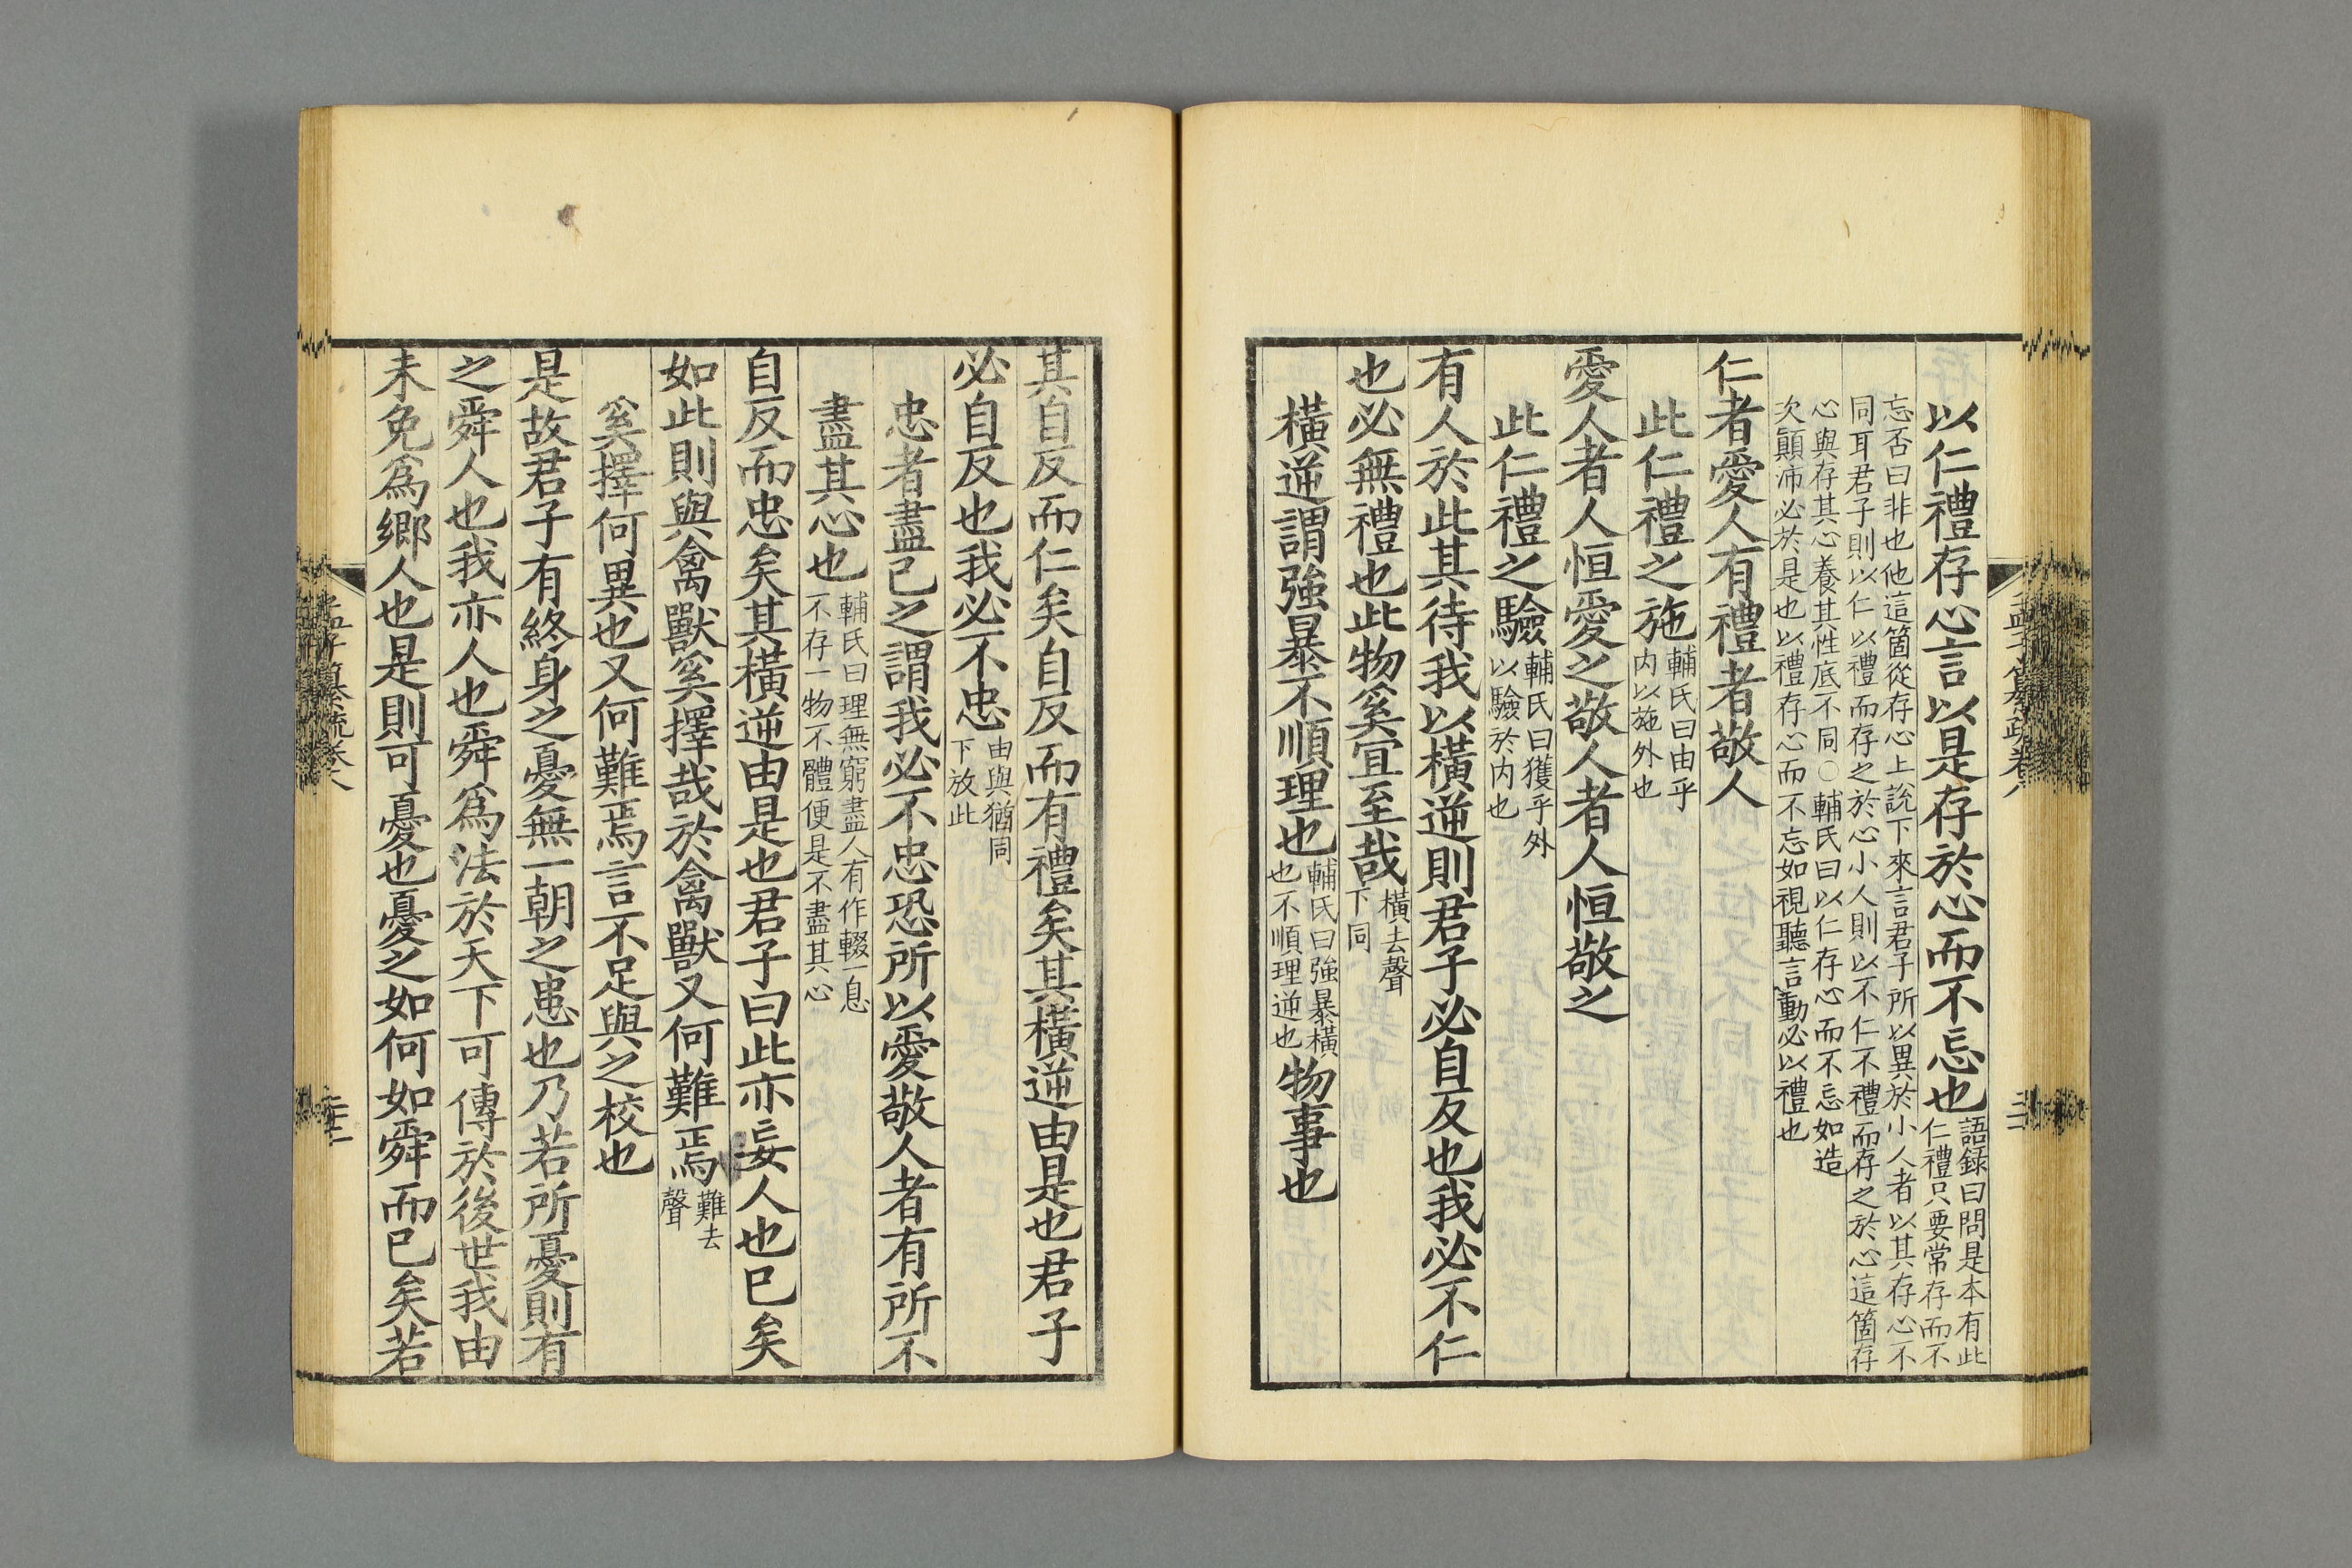 以仁禮存心言以是存於心而不忘也語錄曰問是本有此仁禮只要常存而不
忘否曰非也他這箇從存心上說下來言君子所以異於小人者以其存心不
同耳君子則以仁以禮而存之於心小人則以不仁不禮而存之於心這箇存
心與存其心養其性底不同○輔氏曰以仁存心而不忘如造
次顚沛必於是也以禮存心而不忘如視聽言動必以禮也
仁者愛人有禮者敬人
此仁禮之施輔氏曰由乎内以施外也
愛人者人恒愛之敬人者人恒敬之
此仁禮之驗輔氏曰獲乎外以驗於内也
有人於此其待我以橫逆則君子必自反也我必不仁
也必無禮也此物奚宜至哉橫去聲下同
橫逆謂強暴不順理也輔氏曰強暴橫也不順理逆也物事也
其自反而仁矣自反而有禮矣其橫逆由是也君子
必自反也我必不忠由與猶同下放此
忠者盡己之謂我必不忠恐所以愛敬人者有所不
盡其心也輔氏曰理無窮盡人有作輟一息不存一物不體便是不盡其心
自反而忠矣其橫逆由是也君子曰此亦妄人也已矣
如此則與禽獸奚擇哉於禽獸又何難焉難去聲
奚擇何異也又何難焉言不足與之校也
是故君子有終身之憂無一朝之患也乃若所憂則有
之舜人也我亦人也舜爲法於天下可傳於後世我由
未免爲鄉人也是則可憂也憂之如何如舜而已矣若
孟子纂疏卷八